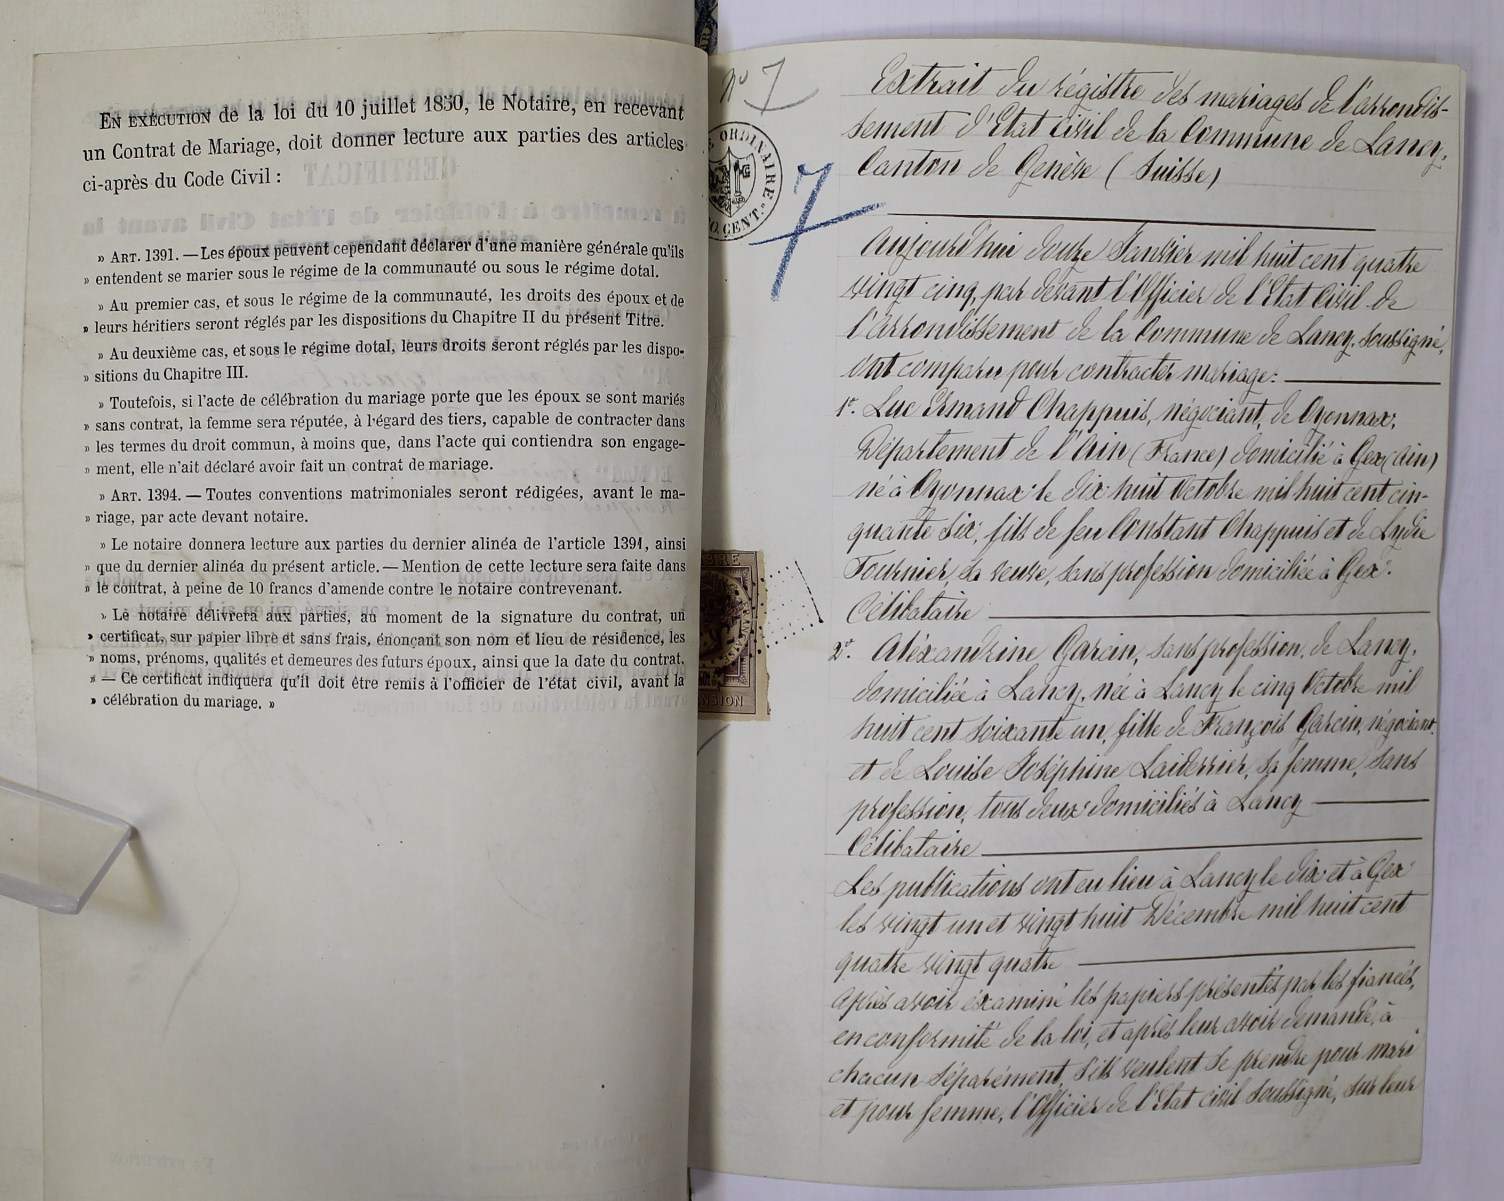 EN EXÉCUTION de la loi du 10 juillet 1850, le Notaire, en recevant
un Contrat de Mariage, doit donner lecture aux parties des articles
ci-après du Code Civil :
» ART. 1391. — Les époux peuvent cependant déclarer d'une manière générale qu'ils
» entendent se marier sous le régime de la communauté ou sous le régime dotal.
» Au premier cas, et sous le régime de la communauté, les droits des époux et de
» leurs héritiers seront réglés par les dispositions du Chapitre II du présent Titre.
» Au deuxième cas, et sous le régime dotal, leurs droits seront réglés par les dispo-
» sitions du Chapitre III.
» Toutefois, si l'acte de célébration du mariage porte que les époux se sont mariés
» sans contrat, la femme sera réputée, à l'égard des tiers, capable de contracter dans
» les termes du droit commun, à moins que, dans l'acte qui contiendra son engage-
» ment, elle n'ait déclaré avoir fait un contrat de mariage.
» ART. 1394. — Toutes conventions matrimoniales seront rédigées, avant le ma-
» riage, par acte devant notaire.
» Le notaire donnera lecture aux parties du dernier alinéa de l'article 1391, ainsi
» que du dernier alinéa du présent article. — Mention de cette lecture sera faite dans
» le contrat, à peine de 10 francs d'amende contre le notaire contrevenant.
» Le notaire délivrera aux parties, au moment de la signature du contrat, un
» certificat, sur papier libre et sans frais, énonçant son nom et lieu de résidence, les
» noms, prénoms, qualités et demeures des futurs époux, ainsi que la date du contrat.
» — Ce certificat indiquera qu'il doit être remis à l'officier de l'état civil, avant la
» célébration du mariage. »
No 7
ORDINAIRE
CENT.
7
Extrait du régistre des mariages de l'arrondis-
sement d'Etat Civil de la Commune de Lancy,
Canton de Genève (Suisse)
Aujourd'hui douze Janvier mil huit cent quatre
vingt cinq, par devant l'Officier de l'Etat Civil de
l'arrondissement de la Commune de Lancy, soussigné,
ont comparu pour contracter mariage:
1o. Luc Armand Chappuis, négociant, de Oyonnax,
Département de l'Ain (France) domicilié à Gex (Ain)
né à Oyonnax le dix huit Octobre mil huit cent cin-
quante six, fils de feu Constant Chappuis et de Lydie
Tournier, sa veuve, sans profession domiciliée à Gex.
Célibataire
2o. Aléxandrine Garcin, sans profession, de Lancy,
domiciliée à Lancy, née à Lancy le cinq Octobre mil
huit cent soixante un, fille de François Garcin, négociant,
et de Louise Joséphine Laiderrier, sa femme, sans
profession, tous deux domiciliés à Lancy
Célibataire
Les publications ont eu lieu à Lancy le dix et à Gex
les vingt un et vingt huit Décembre mil huit cent
quatre vingt quatre
Après avoir éxaminé les papiers présentés par les fiancés,
en conformité de la loi, et après leur avoir demandé, à
chacun séparément, s'ils veulent se prendre pour mari
et pour femme, l'Officier de l'Etat civil soussigné, sur leur